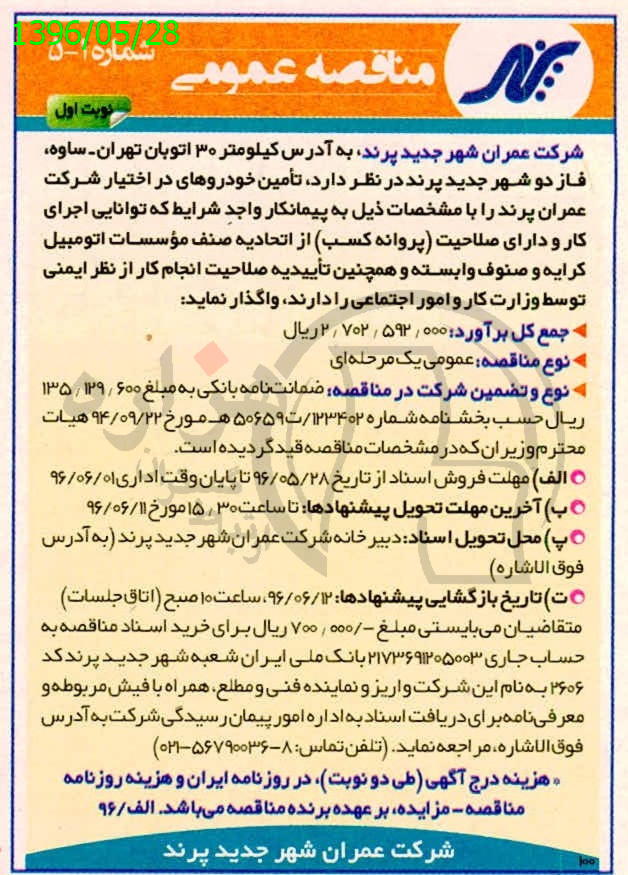 1396/05/28
شماره ۱-۵
مناقصه عمومی
پرند
نوبت اول
شرکت عمران شهر جدید پرند، به آدرس کیلومتر ۳۰ اتوبان تهران-ساوه،
فاز دو شهر جدید پرند در نظر دارد، تأمین خودروهای در اختیار شرکت
عمران پرند را با مشخصات ذیل به پیمانکار واجد شرایط که توانایی اجرای
کار و دارای صلاحیت (پروانه کسب) از اتحادیه صنف مؤسسات اتومبیل
کرایه و صنوف وابسته و همچنین تأییدیه صلاحیت انجام کار از نظر ایمنی
توسط وزارت کار و امور اجتماعی را دارند، واگذار نماید:
جمع کل برآورد: ۲٫۷۰۲٫۵۹۲٫۰۰۰ ریال
نوع مناقصه: عمومی یک مرحله‌ای
نوع و تضمین شرکت در مناقصه: ضمانت‌نامه بانکی به مبلغ ۱۳۵٫۱۲۹٫۶۰۰
ریال حسب بخشنامه شماره ۱۲۳۴۰۲/ت۵۰۶۵۹ هـ مورخ ۹۴/۰۹/۲۲ هیات
محترم وزیران که در مشخصات مناقصه قید گردیده است.
الف) مهلت فروش اسناد از تاریخ ۹۶/۰۵/۲۸ تا پایان وقت اداری ۹۶/۰۶/۰۱
ب) آخرین مهلت تحویل پیشنهادها: تا ساعت ۱۵٫۳۰ مورخ ۹۶/۰۶/۱۱
پ) محل تحویل اسناد: دبیرخانه شرکت عمران شهر جدید پرند (به آدرس
فوق الاشاره)
ت) تاریخ بازگشایی پیشنهادها: ۹۶/۰۶/۱۲، ساعت ۱۰ صبح (اتاق جلسات)
متقاضیان می‌بایستی مبلغ -/۷۰۰٫۰۰۰ ریال برای خرید اسناد مناقصه به
حساب جاری ۲۱۷۳۶۹۱۲۰۵۰۰۳ بانک ملی ایران شعبه شهر جدید پرند کد
۲۶۰۶ به نام این شرکت واریز و نماینده فنی و مطلع، همراه با فیش مربوطه و
معرفی‌نامه برای دریافت اسناد به اداره امور پیمان رسیدگی شرکت به آدرس
فوق الاشاره، مراجعه نماید. (تلفن تماس: ۸-۵۶۷۹۰۰۳۶-۰۲۱)
* هزینه درج آگهی (طی دو نوبت)، در روزنامه ایران و هزینه روزنامه
مناقصه - مزایده، بر عهده برنده مناقصه می‌باشد. الف/۹۶
شرکت عمران شهر جدید پرند
۱۰۰